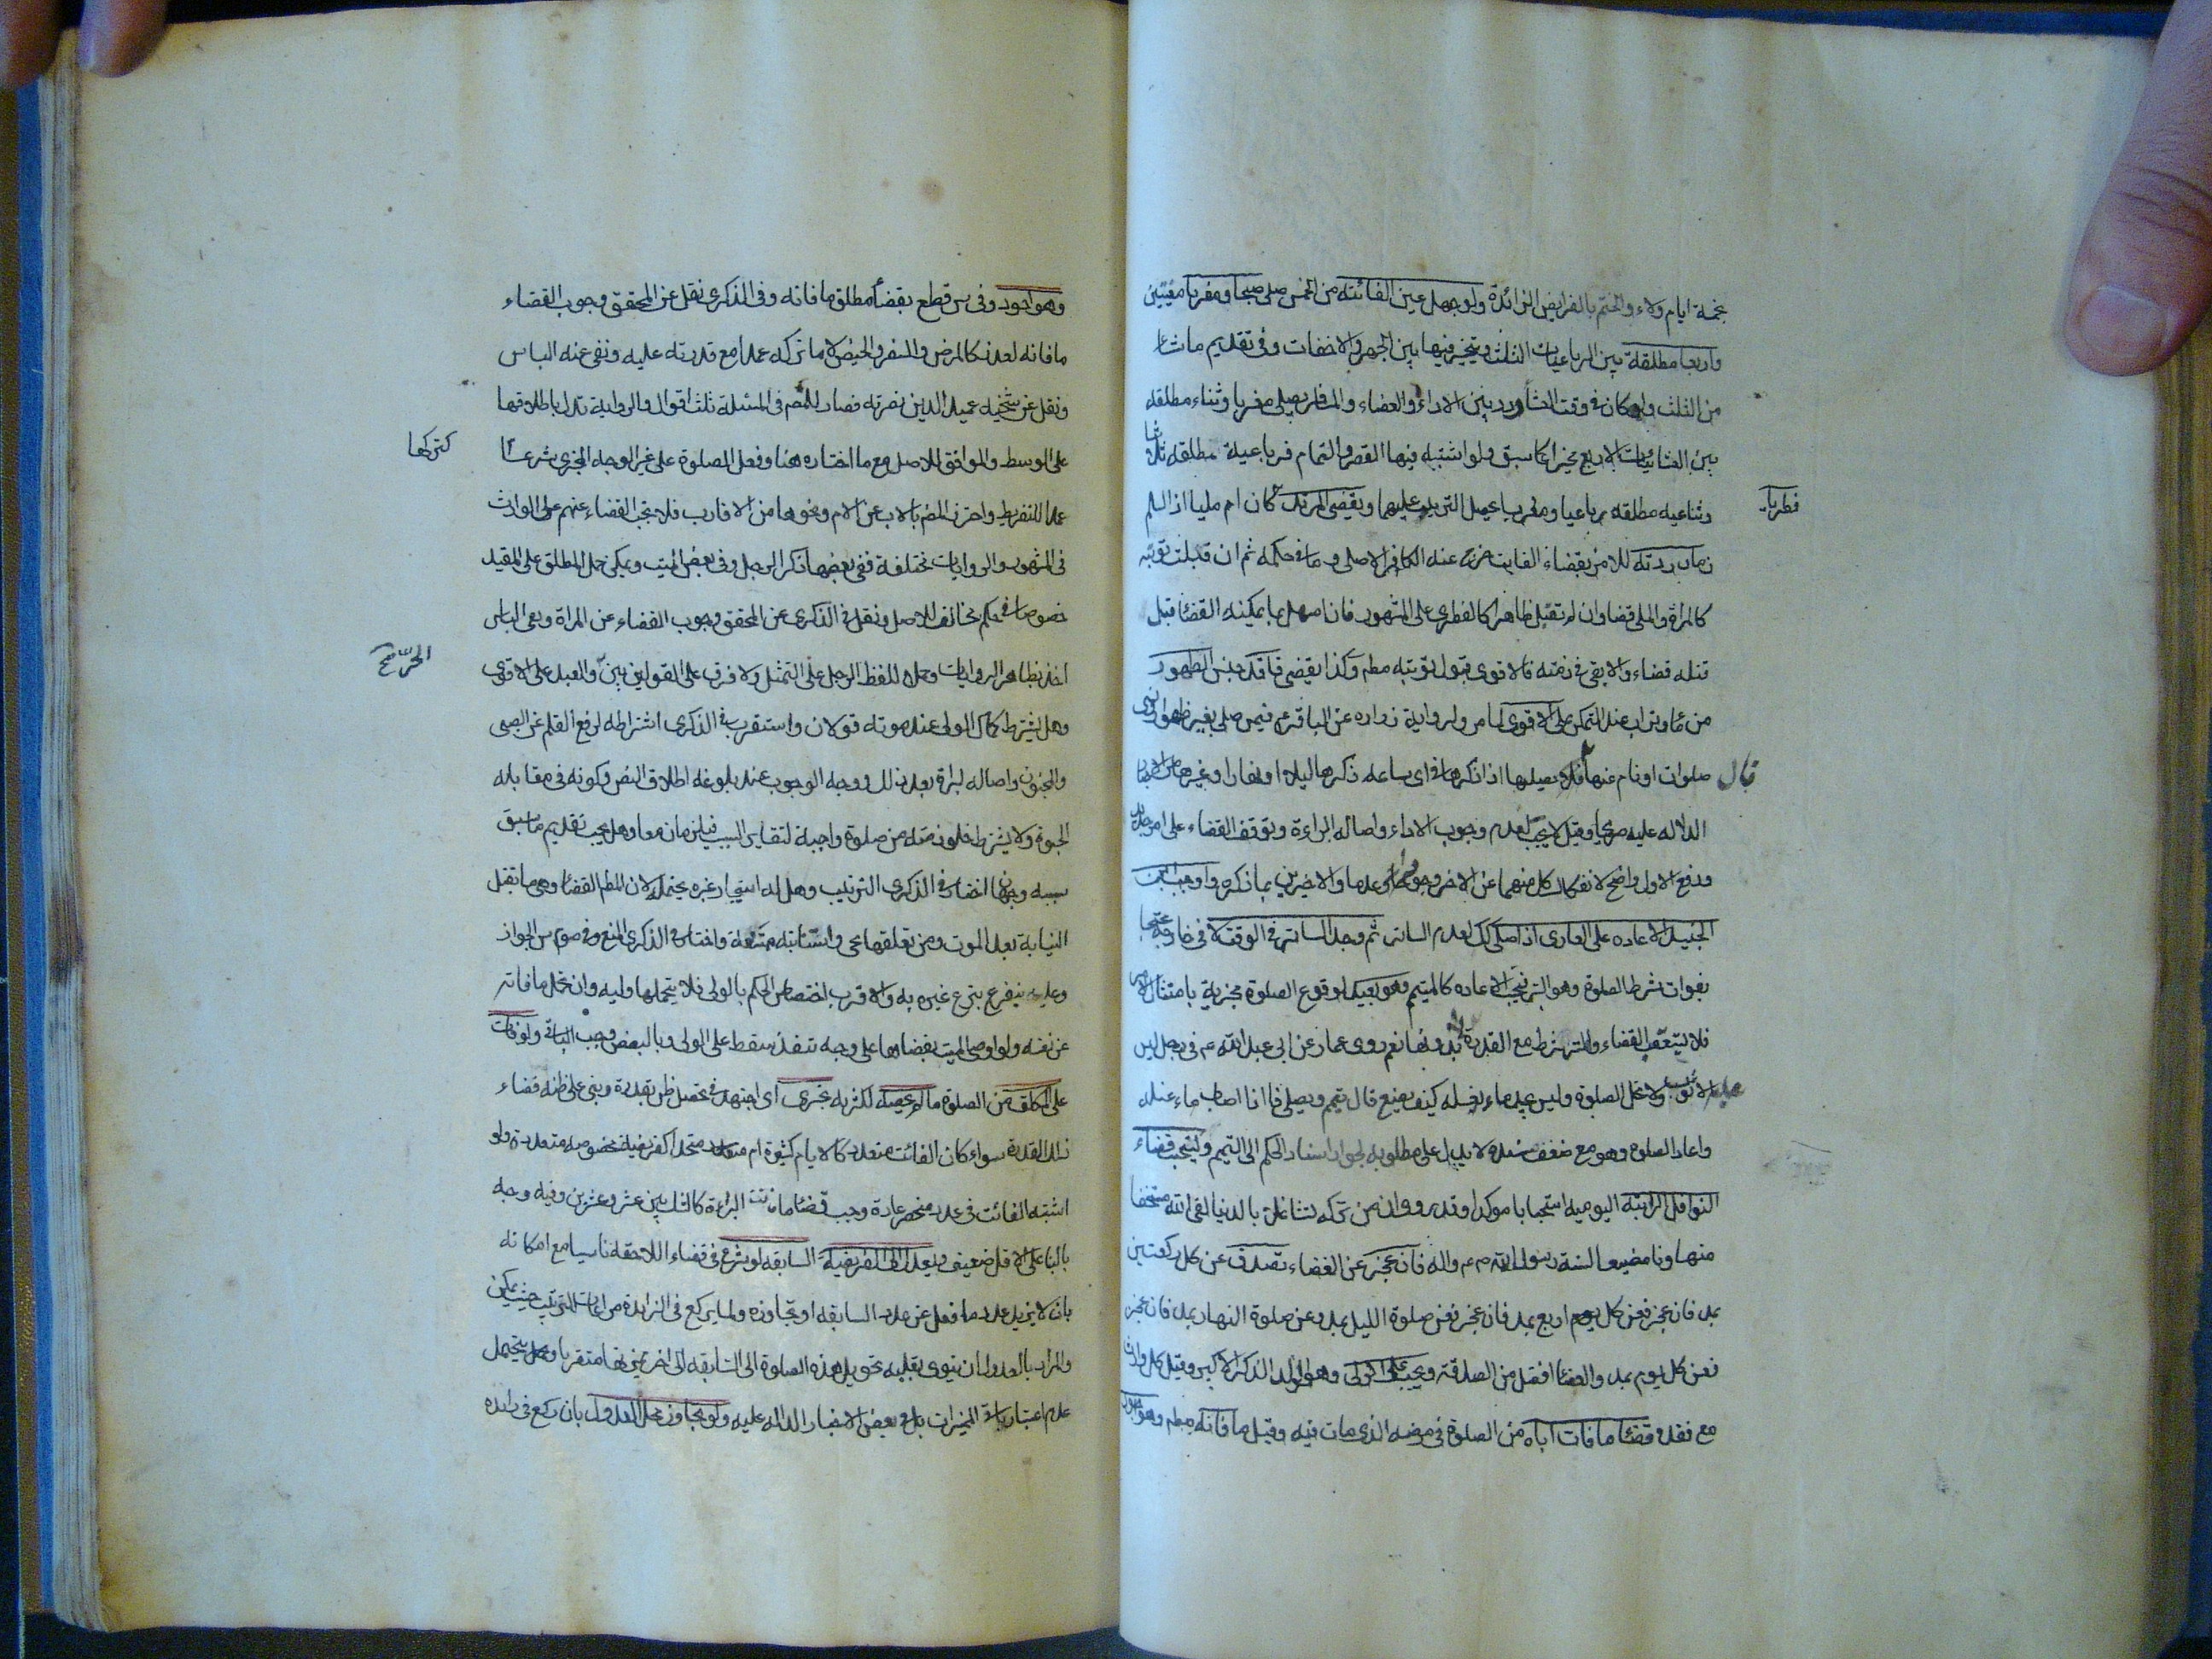 بخمسة ايام ولاء والختم بالفرايض الزائدة ولو جهل عين الفائتة من الخمس صلى صبحا ومغربا معينتين
واربعا مطلقة بين الرباعيات الثلث ويتخير فيها بين الجهر والاخفات وفي تقديم ما شاء
من الثلث ولو كان في وقت العشاء ردد بين الاداء والقضاء والمسافر يصلي مغربا وثنائية مطلقه
بين الثنائيات الاربع مخيرا كما سبق ولو اشتبه فيها القصر والتمام فرباعية مطلقه ثلاثيا
وثنائيه مطلقه رباعيا ومغربا يحصل الترتيب عليهما ويقضي المرتد كان ام مليا اذا اسلم
فطريا
زمان ردته للامر بقضاء الفايت خرج عنه الكافر الاصلي وما في حكمه ثم ان قبلت توبته
كالمراة والملي قضا وان لم تقبل ظاهرا كالفطري على المشهور فان امهل بما يمكنه القضاء قبل
قتله قضاء والا بقي في ذمته فالاقوى قبول توبته مطم وكذا يقضي فاقد جنس الطهور
من ماء وتراب عند التمكن على الاقوى لما مر ولرواية زراره عن الباقر ع فيمن صلى بغير طهور او نسي
صلوات او نام عنها قال يصليها اذا ذكرها في اي ساعه ذكرها ليلا او نهارا وغيرها من الاخبار
الدلاله عليه صريحا وقيل لا يجب لعدم وجوب الاداء واصاله البراءة وتوقف القضاء على امر جديد
ودفع الاول واضح لانفكاك كل منهما عن الاخر وجودا وعدما والاخيرين بما ذكره واوجب ابن
الجنيد الاعاده على العاري اذا صلى كك لعدم الساتر ثم وجد الساتر في الوقت لا في خارجه محتجا
بفوات شرط الصلوة وهو الستر فيجب الاعاده كالمتيم وهو بعيد لوقوع الصلوة مجزية بامتثال الامر
فلا يتعقب القضاء والستر شرط مع القدرة لا بدونها نعم روى عمار عن ابي عبد الله ع في رجل ليس
عليه الا ثوب ولا تحل الصلوة وليس يجد ماء يغسله كيف يصنع قال يتيم ويصلي فاذا اصاب ماء غسله
واعاد الصلوة وهو مع ضعف سنده لا يدل على مطلوبه لجواز استناد الحكم الى التيمم ويستحب قضاء
النوافل الراتبة اليوميه استحبابا موكدا وقد روى ان من تركه تشاغلا بالدنيا لقي الله مستخفا
متهاونا مضيعا لسنة رسول الله ص واله فان عجز عن القضاء تصدق عن كل ركعتين
بمد فان عجز فعن كل اربع بمد فان عجز فعن صلوة الليل بمد وعن صلوة النهار بمد فان عجز
فعن كل يوم بمد والقضاء افضل من الصدقة ويجب على الولي وهو الولد الذكر الاكبر وقيل كل وارث
مع فقده قضاء ما فات اباه من الصلوة في مرضه الذي مات فيه وقيل ما فاته مطم وهو احوط
وهو اجود وفي س قطع بقضاء مطلق ما فاته وفي الذكرى نقل عن المحقق وجوب القضاء
ما فاته لعذر كالمرض والسفر والحيض لا ما تركه عمدا مع قدرته عليه ونفى عنه الباس
ونقل عن شيخه عميد الدين نصرته فصار للمصم في المسئلة ثلث اقوال والرواية تدل باطلاقها
على الوسط والموافق للاصل مع ما اختاره هنا وفعل الصلوة على غير الوجه المجزي شرعا
كتركها
عمدا للتفريط واحترز المصم بالاب عن الام ونحوها من الاقارب فلا يجب القضاء عنهم على الوارث
في المشهور والروايات مختلفة ففي بعضها ذكر الرجل وفي بعض الميت ويمكن حمل المطلق على المقيد
خصوصا في حكم مخالف للاصل ونقل في الذكرى عن المحقق وجوب القضاء عن المراة ونفى الباس
اخذ بظاهر الروايات وحمله للفظ الرجل على التمثل ولا فرق على القولين بين والعبد على الاقوى
الحر صح
وهل يشترط كمال الولي عند موته قولان واستقرب في الذكرى اشتراطه لرفع القلم عن الصبي
والمجنون واصاله البراءة بعد ذلك ووجه الوجوب عند بلوغه اطلاق النص وكونه في مقابله
الحبوة ولا يشترط خلو ذمته من صلوة واجبة لتغاير السبب فيلزمان معا وهل يجب تقديم ما سبق
سببه وجهان اختار في الذكرى الترتيب وهل له استيجار غيره يحتمله لان المطم القضاء وهي ما تقبل
النيابة بعد الموت ومن تعلقها بحي واستنابته ممتنعة واختار في الذكرى المنع وفي صوم س الجواز
وعليه يتفرع تبرع غيره به والاقرب اختصاص الحكم بالولي فلا يتحملها وليه وان تحمل ما فاته
عن نفسه ولو اوصى الميت بقضائها على وجه تنفذ سقط على الولي وبالبعض وجب الباقي ولو فات
على المكلف من الصلوة ما لم يحصه لكثرته تحرى اي اجتهد في تحصيل ظن بقدره وبنى على ظنه قضاء
ذلك القدر سواء كان الفائت متعددا كالايام كثيرة ام متحدا كفريضة مخصوصه متعددة ولو
اشتبه الفائت في عدد منحصر عادة وجب قضاء ما البراءة كالشك بين عشر وعشرين وفيه وجه
بالبنا على الاقل ضعيف ويعدل الى الفريضة السابقه لو شرع في قضاء اللاحقه ناسيا مع امكانه
بان لا يزيد عدد ما فعل عن عدد السابقه او تجاوزه ولما يركع في الزايدة مراعات للترتيب حيث يمكن
والمراد بالعدول ان ينوي بقلبه تحويل هذه الصلوة الى السابقه الى اخر مميزاتها متقربا ويحتمل
عدم اعتبار باقي المميزات بل في بعض الاخبار الدلاله عليه ولو تجاوز محل العدول بان ركع في زايده